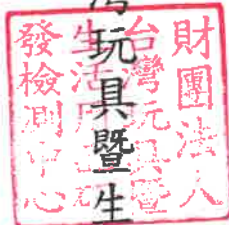 財團法人
台灣玩具暨
生活用品研
發檢測中心
玩具暨生